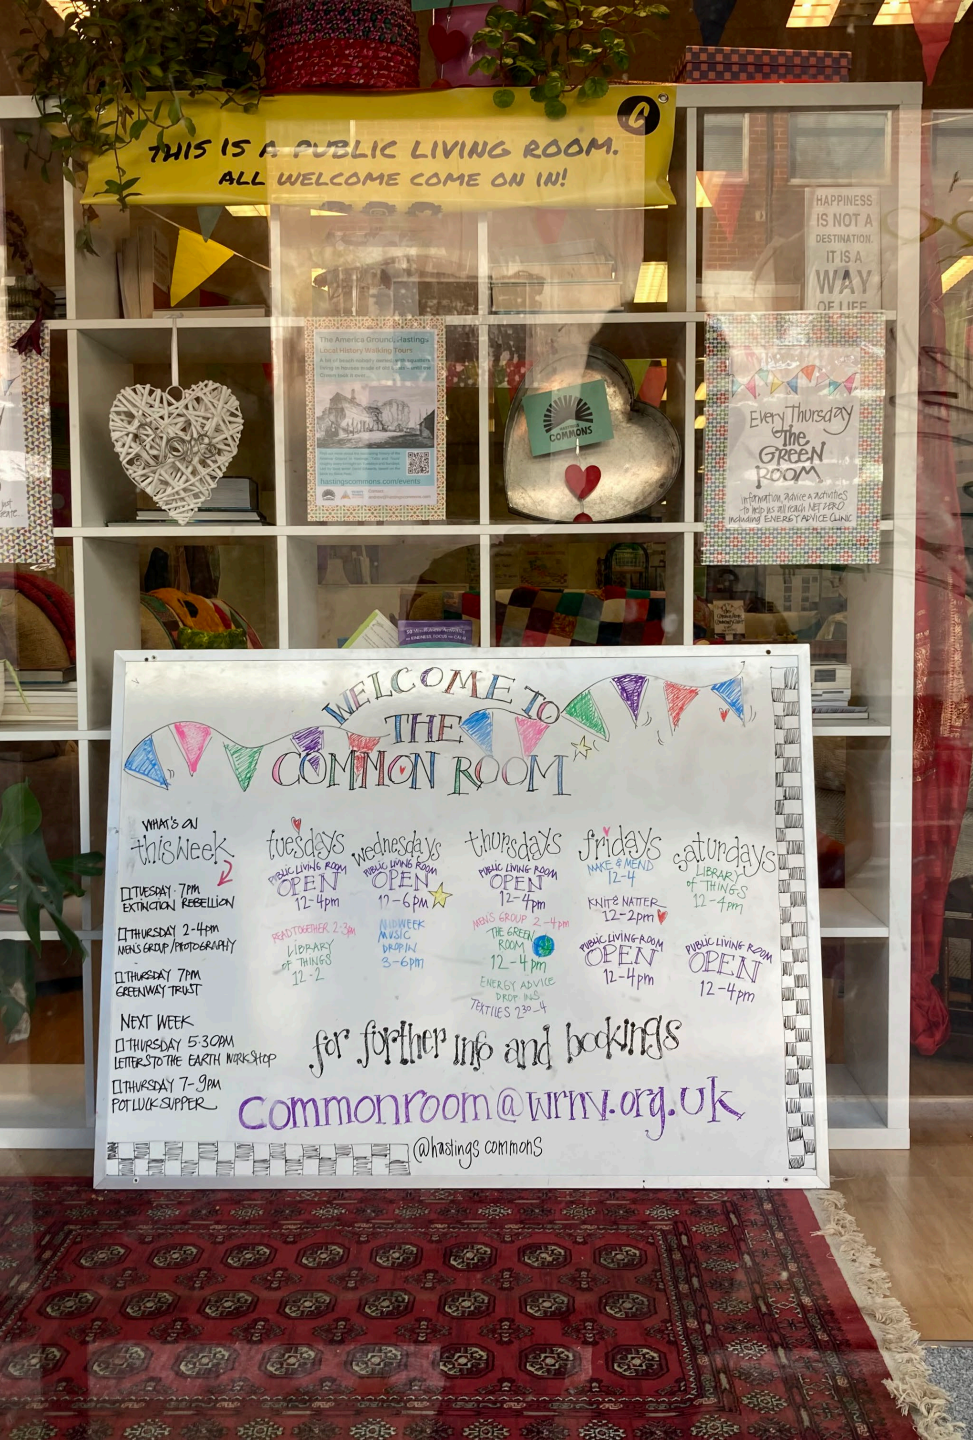 THIS IS A PUBLIC LIVING ROOM.
ALL WELCOME COME ON IN!
HAPPINESS
IS NOT A
DESTINATION.
IT IS A
WAY
OF LIFE
The America Ground, Hastings
Local History Walking Tours
hastingscommons.com/events
HASTINGS
COMMONS
Every Thursday
The
GREEN
ROOM
information, advice & activities
to help us all reach NET ZERO
including ENERGY ADVICE CLINIC
WELCOME TO
THE
COMMON ROOM
WHAT'S ON
this week
TUESDAY 7PM
EXTINCTION REBELLION
THURSDAY 2-4pm
MEN'S GROUP/PHOTOGRAPHY
THURSDAY 7PM
GREENWAY TRUST
NEXT WEEK
THURSDAY 5.30PM
LETTERS TO THE EARTH WORKSHOP
THURSDAY 7-9PM
POT LUCK SUPPER
tuesdays
PUBLIC LIVING ROOM
OPEN
12-4pm
READ TOGETHER 2-3pm
LIBRARY
OF THINGS
12-2
wednesdays
PUBLIC LIVING ROOM
OPEN
12-6pm
MIDWEEK
MUSIC
DROP IN
3-6pm
thursdays
PUBLIC LIVING ROOM
OPEN
12-4pm
MEN'S GROUP 2-4pm
THE GREEN
ROOM
12-4pm
ENERGY ADVICE
DROP INS
TEXTILES 2³⁰-4
fridays
MAKE & MEND
12-4
KNIT & NATTER
12-2pm
PUBLIC LIVING ROOM
OPEN
12-4pm
saturdays
LIBRARY
OF THINGS
12-4pm
PUBLIC LIVING ROOM
OPEN
12-4pm
for further info and bookings
commonroom@wrnv.org.uk
@hastings commons